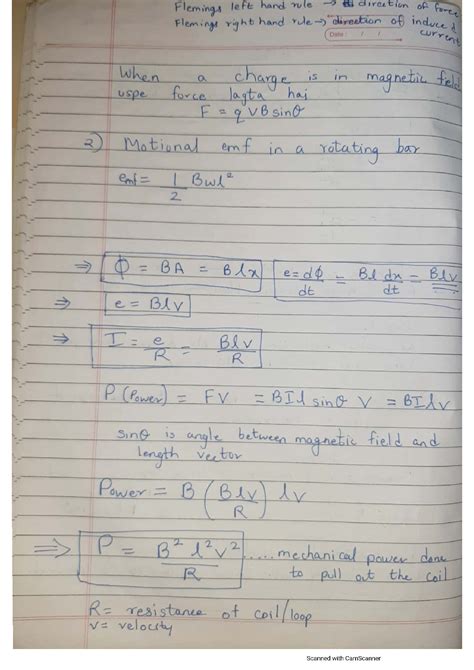 Flemings left hand rule → direction of force
Flemings right hand rule → direction of induced current
Date : / /
When a charge is in magnetic field
uspe force lagta hai
F = q VB sinθ
2) Motional emf in a rotating bar
emf = 1/2 Bwl²
⇒ ϕ = BA = Blx e = dϕ/dt = Bl dx/dt = Blv
⇒ e = Blv
⇒ I = e/R = Blv/R
P (Power) = FV = BIl sinθ V = BIlv
sinθ is angle between magnetic field and
length vector
Power = B (Blv/R) lv
⇒ P = B² l² v²/R ..... mechanical power done
to pull out the coil
R = resistance of coil/loop
v = velocity
Scanned with CamScanner